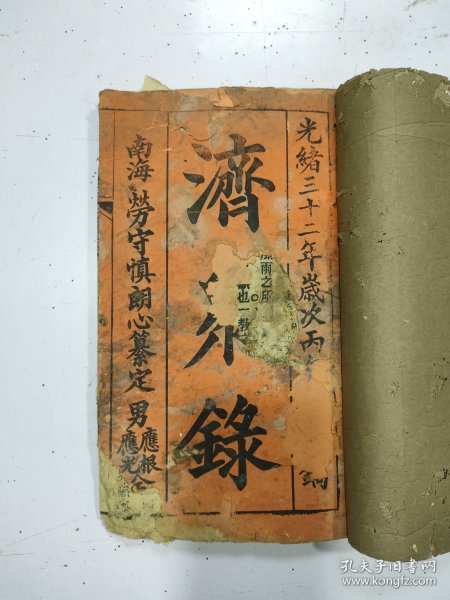 光緒三十二年歲次丙
濟
錄
雨之所
也一教
南海勞守慎朗心纂定男應根
應光仝
孔夫子旧书网
www.kongfz.com